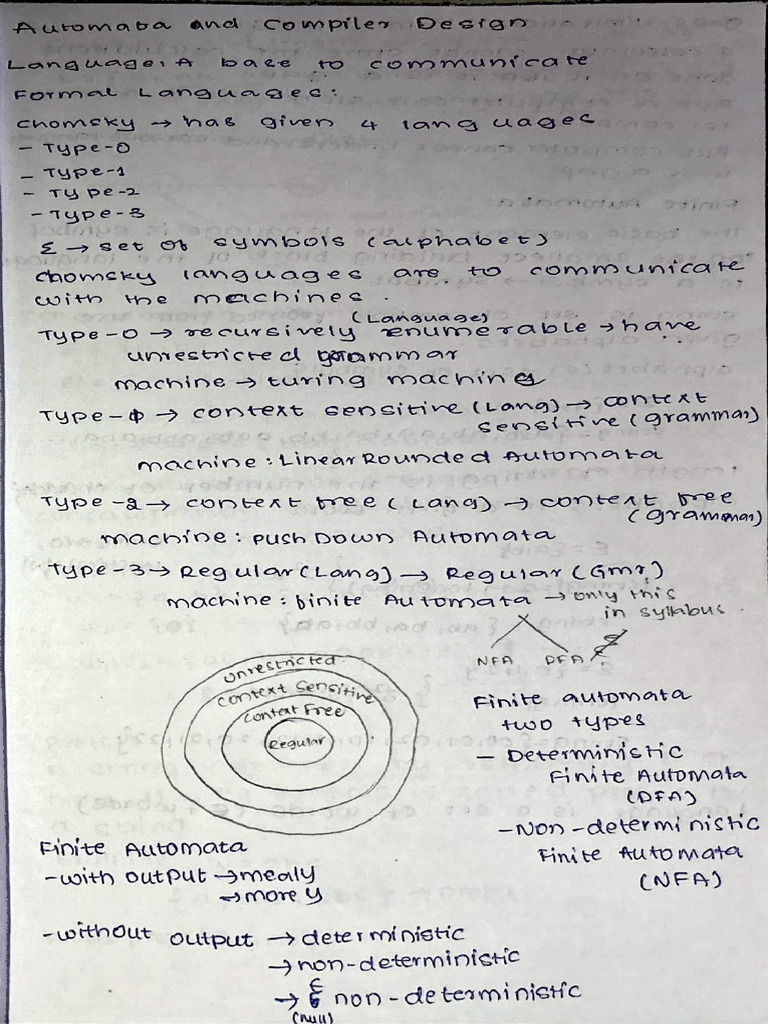 Automata and Compiler Design
Language: A base to communicate
Formal Languages:
Chomsky → has given 4 languages
- Type-0
- Type-1
- Type-2
- Type-3
Σ → set of symbols (alphabet)
Chomsky languages are to communicate
with the machines.
(Language)
Type-0 → recursively enumerable → have
unrestricted grammar
machine → turing machines
Type-1 → context sensitive (Lang) → context
sensitive (grammar)
machine: Linear Rounded Automata
Type-2 → context free (Lang) → context free
(grammar)
machine: Push Down Automata
Type-3 → Regular (Lang) → Regular (Gmr)
machine: finite Automata → only this
in syllabus
NFA DFA
unrestricted
context Sensitive
context Free
Regular
Finite automata
two types
- Deterministic
Finite Automata
(DFA)
- Non-deterministic
Finite Automata
(NFA)
Finite Automata
- with output → mealy
→ more y
- without output → deterministic
→ non-deterministic
→ ε non-deterministic
(null)